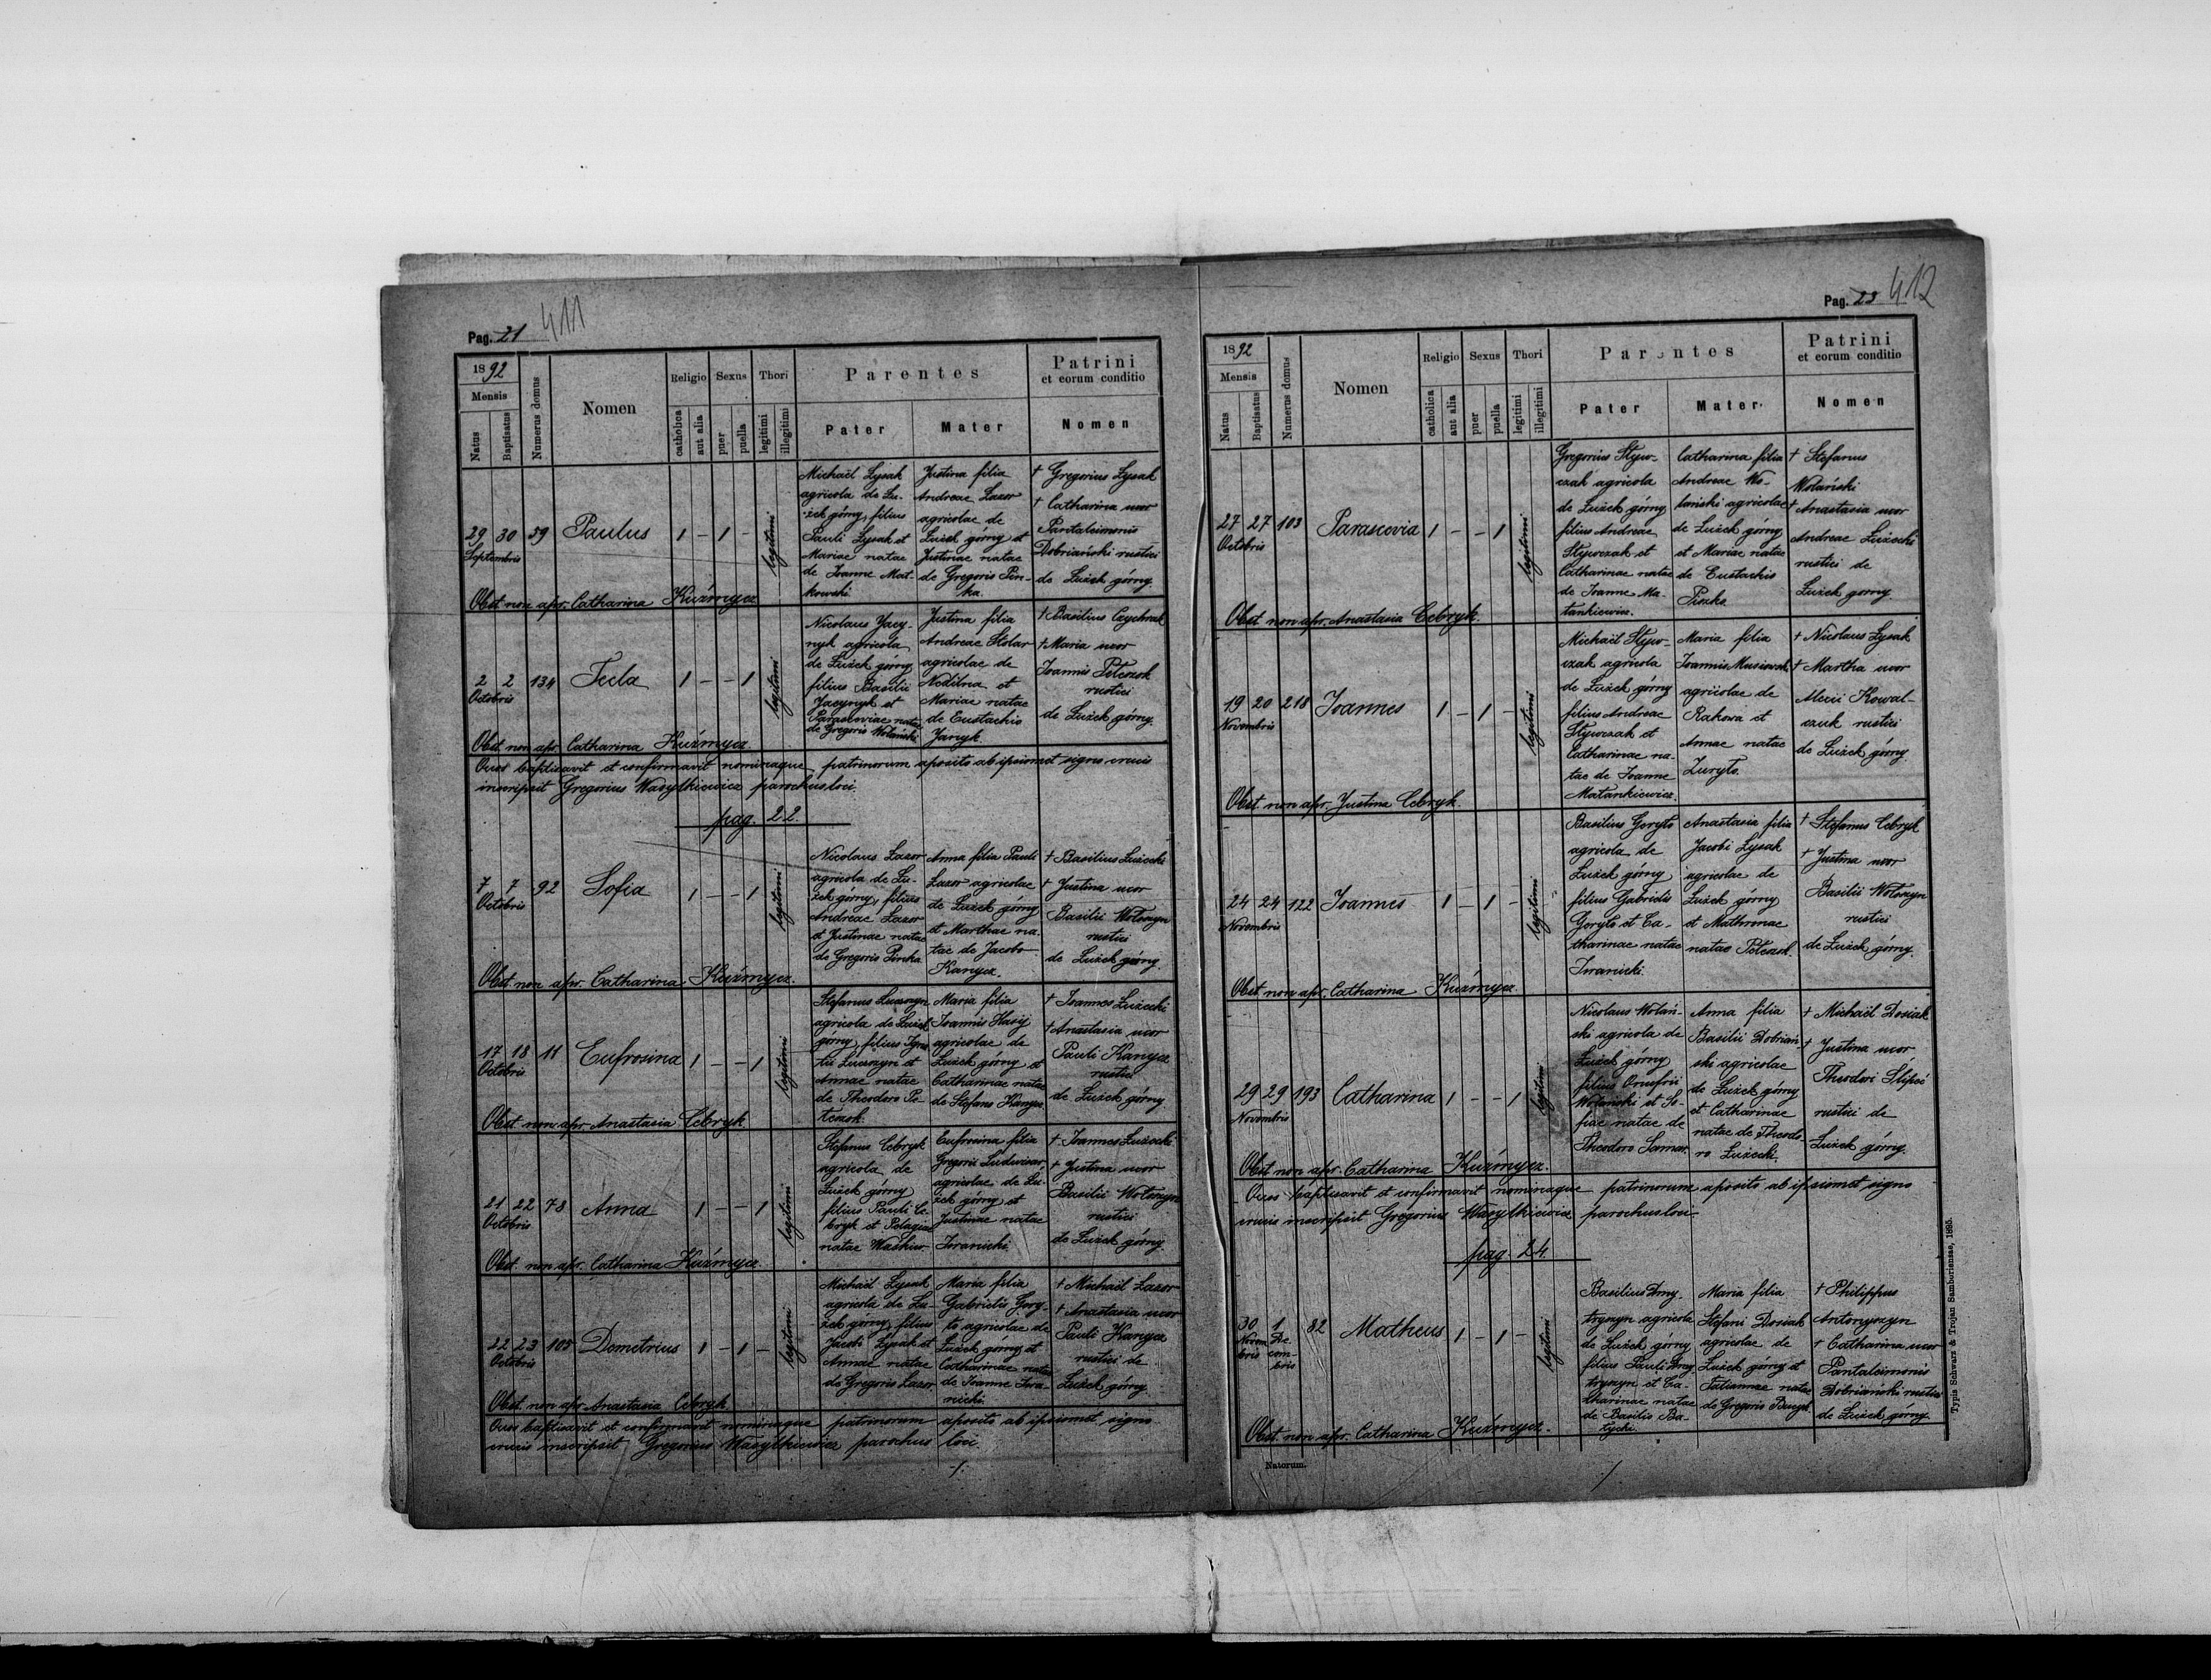 Pag. 21 411
1892
Mensis
Natus
Baptisatus
Numerus domus
Nomen
Religio
catholica
aut alia
Sexus
puer
puella
Thori
legitimi
illegitimi
Parentes
Pater
Mater
Patrini
et eorum conditio
Nomen
29 30 59 Paulus 1 – 1 – legitimi
Septembris
Michaël Łysak
agricola de Łu-
żek górny, filius
Pauli Łysak et
Mariae natae
de Joanne Mat-
kowski
Justina filia
Andreae Lazor
agricolae de
Łużek górny et
Justinae natae
de Gregorio Pin-
ka.
† Gregorius Łysak
† Catharina uxor
Pantaleimonis
Dobriański rustici
de Łużek górny
Obst. non apr. Catharina Kuźmycz
2 2 134 Tecla 1 – – 1 legitimi
Octobris
Nicolaus Jacy-
nyk agricola
de Łużek górny
filius Basilii
Jacynyk et
Parasceviae natae
de Gregorio Wolański
Justina filia
Andreae Stolar
agricolae de
Nedilna et
Mariae natae
de Eustachio
Janyk.
† Basilius Czychrak
† Maria uxor
Joannis Poteszok
rustici
de Łużek górny.
Obst. non apr. Catharina Kuźmycz
Quos baptisavit et confirmavit nominaque patrinorum aposito ab ipsismet signo crucis
inscripsit Gregorius Wasylkiewicz parochus loci.
pag. 22.
7 7 92 Sofia 1 – – 1 legitimi
Octobris
Nicolaus Lazor
agricola de Łu-
żek górny, filius
Andreae Lazor
et Justinae natae
de Gregorio Pinka
Anna filia Pauli
Lazor agricolae
de Łużek górny
et Marthae na-
tae de Jacobo
Kanycz.
† Basilius Łużecki
† Justina uxor
Basilii Wołoszyn
rustici
de Łużek górny.
Obst. non apr. Catharina Kuźmycz.
17 18 11 Eufrosina 1 – – 1 legitimi
Octobris
Stefanus Lucszyn
agricola de Łużek
górny, filius Igna-
tii Lucszyn et
Annae natae
de Theodoro Po-
teszok.
Maria filia
Joannis Hasij
agricolae de
Łużek górny et
Catharinae natae
de Stefano Kanycz
† Joannes Łużecki
† Anastasia uxor
Pauli Kanycz
rustici
de Łużek górny.
Obst. non apr. Anastasia Cebryk
21 22 78 Anna 1 – – 1 legitimi
Octobris
Stefanus Cebryk
agricola de
Łużek górny
filius Pauli Ce-
bryk et Pelagiae
natae Waskiw.
Eufrosina filia
Gregorii Ludwiszar
agricolae de Łu-
żek górny et
Justinae natae
Iwanicki.
† Joannes Łużecki
† Justina uxor
Basilii Wołoszyn
rustici
de Łużek górny.
Obst. non apr. Catharina Kuźmycz
22 23 105 Demetrius 1 – 1 – legitimi
Octobris
Michaël Łysak
agricola de Łu-
żek górny, filius
Jacobi Łysak et
Annae natae
de Gregorio Lazor
Maria filia
Gabrielis Gory-
to agricolae de
Łużek górny et
Catharinae natae
de Joanne Iwa-
nicki.
† Michaël Lazor
† Anastasia uxor
Pauli Kanycz
rustici de
Łużek górny.
Obst. non apr. Anastasia Cebryk
Quos baptisavit et confirmavit nominaque patrinorum aposito ab ipsismet signo
crucis inscripsit Gregorius Wasylkiewicz parochus loci.
Pag. 23 412
1892
Mensis
Natus
Baptisatus
Numerus domus
Nomen
Religio
catholica
aut alia
Sexus
puer
puella
Thori
legitimi
illegitimi
Parentes
Pater
Mater
Patrini
et eorum conditio
Nomen
27 27 103 Parascevia 1 – – 1 legitimi
Octobris
Gregorius Stյw-
czak agricola
de Łużek górny
filius Andreae
Stywczak et
Catharinae natae
de Joanne Ma-
tankiewicz.
Catharina filia
Andreae Wo-
lański agricolae
de Łużek górny
et Mariae natae
de Eustachio
Pinka.
† Stefanus
Wolański
† Anastasia uxor
Andreae Łużecki
rustici de
Łużek gorny.
Obst. non apr. Anastasia Cebryk.
19 20 218 Joannes 1 – 1 – legitimi
Novembris
Michaël Styw-
czak agricola
de Łużek górny
filius Andreae
Stywczak et
Catharinae na-
tae de Joanne
Matankiewicz.
Maria filia
Joannis
agricolae de
Rakowa et
Annae natae
Zuryło.
† Nicolaus Łysak
† Martha uxor
Alexii Kowal-
czuk rustici
de Łużek górny.
Obst. non apr. Justina Cebryk.
24 24 122 Joannes 1 – 1 – legitimi
Novembris
Basilius Goryto
agricola de
Łużek górny
filius Gabrielis
Goryto et Ca-
tharinae natae
Iwanicki.
Anastasia filia
Jacobi Łysak
agricolae de
Łużek górny
et Mathronae
natae Poteszok.
† Stefanus Cebryk
† Justina uxor
Basilii Wołoszyn
rustici
de Łużek górny.
Obst. non apr. Catharina Kuźmycz.
29 29 193 Catharina 1 – – 1 legitimi
Novembris
Nicolaus Wolań-
ski agricola de
Łużek górny
filius Onufrii
Wolański et So-
fiae natae de
Theodoro Samar.
Anna filia
Basilii Dobriań-
ski agricolae
de Łużek górny
et Catharinae
natae de Theodo-
ro Łużecki.
† Michaël Dosiak
† Justina uxor
Theodori Slipeć
rustici de
Łużek górny.
Obst. non apr. Catharina Kuźmycz.
Quos baptisavit et confirmavit nominaque patrinorum aposito ab ipsismet signo
crucis inscripsit Gregorius Wasylkiewicz parochus loci
pag. 24.
30 1 82 Matheus 1 – 1 – legitimi
Novem- De-
bris cem-
bris
Basilius Dmy-
tryszyn agricola
de Łużek górny
filius Pauli Dmy-
tryszyn et Ca-
tharinae natae
de Basilio Ba-
tycki.
Maria filia
Stefani Dosiak
agricolae de
Łużek górny et
Tatiannae natae
de Gregorio
† Philippus
Antonyszyn
† Catharina uxor
Pantaleimonis
Dobriański rustici
de Łużek górny.
Obst. non apr. Catharina Kuźmycz.
Natorum.
Typis Schwarz & Trojan Samboriensse, 1895.